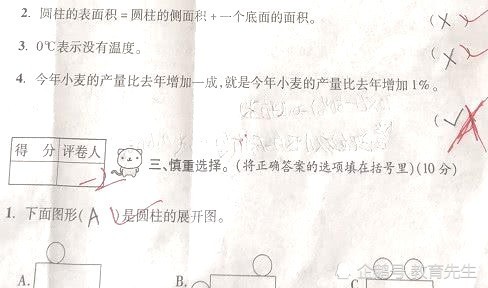 2. 圆柱的表面积=圆柱的侧面积+一个底面的面积。 (×)
3. 0℃表示没有温度。 (×)
4. 今年小麦的产量比去年增加一成,就是今年小麦的产量比去年增加1%。
(✓)
得 分 评卷人
三、慎重选择。(将正确答案的选项填在括号里)(10分)
1. 下面图形(A)是圆柱的展开图。
A. B. C
企鹅号 教育先生